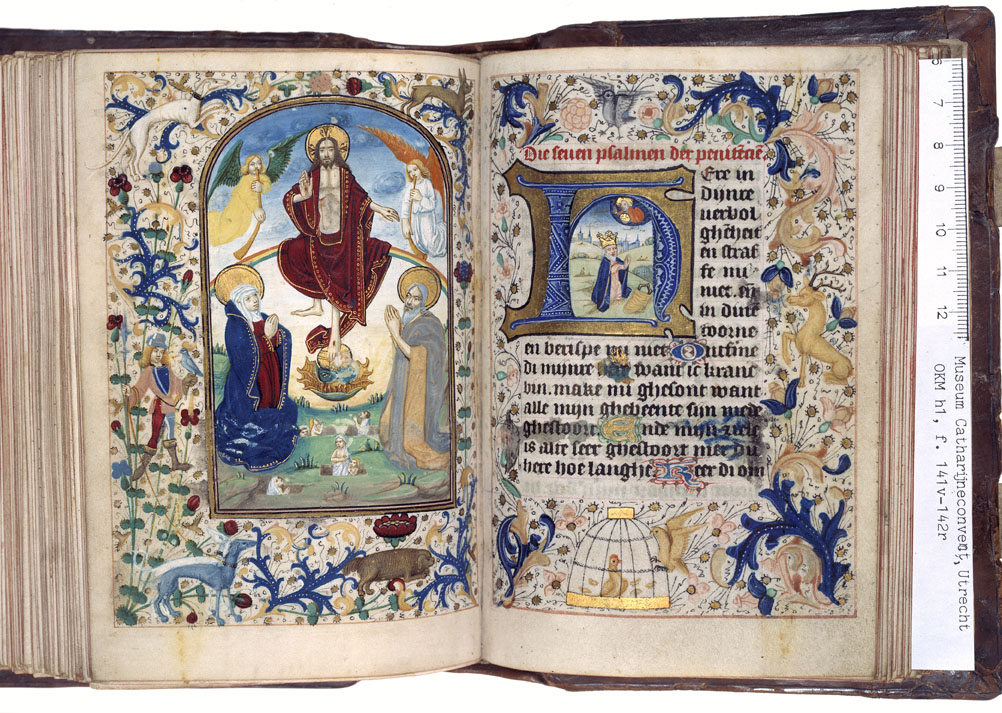 Die seuen psalmen der penitēciē.
HEre in
dijnre
verbol
ghētheit
en straf
fe mi
niet. eñ
in dine
toorne
en berispe mi niet Ontfine
di mijnre want ic kranc
bin. make mi ghesont want
alle mijn ghebeente sijn mede
ghestoort. Ende mijn ziele
is alte seer ghestoort mer du
here hoe langhe Keer di om
6 7 8 9 10 11 12
Museum Catharijneconvent, Utrecht
OKM h1, f. 141v-142r